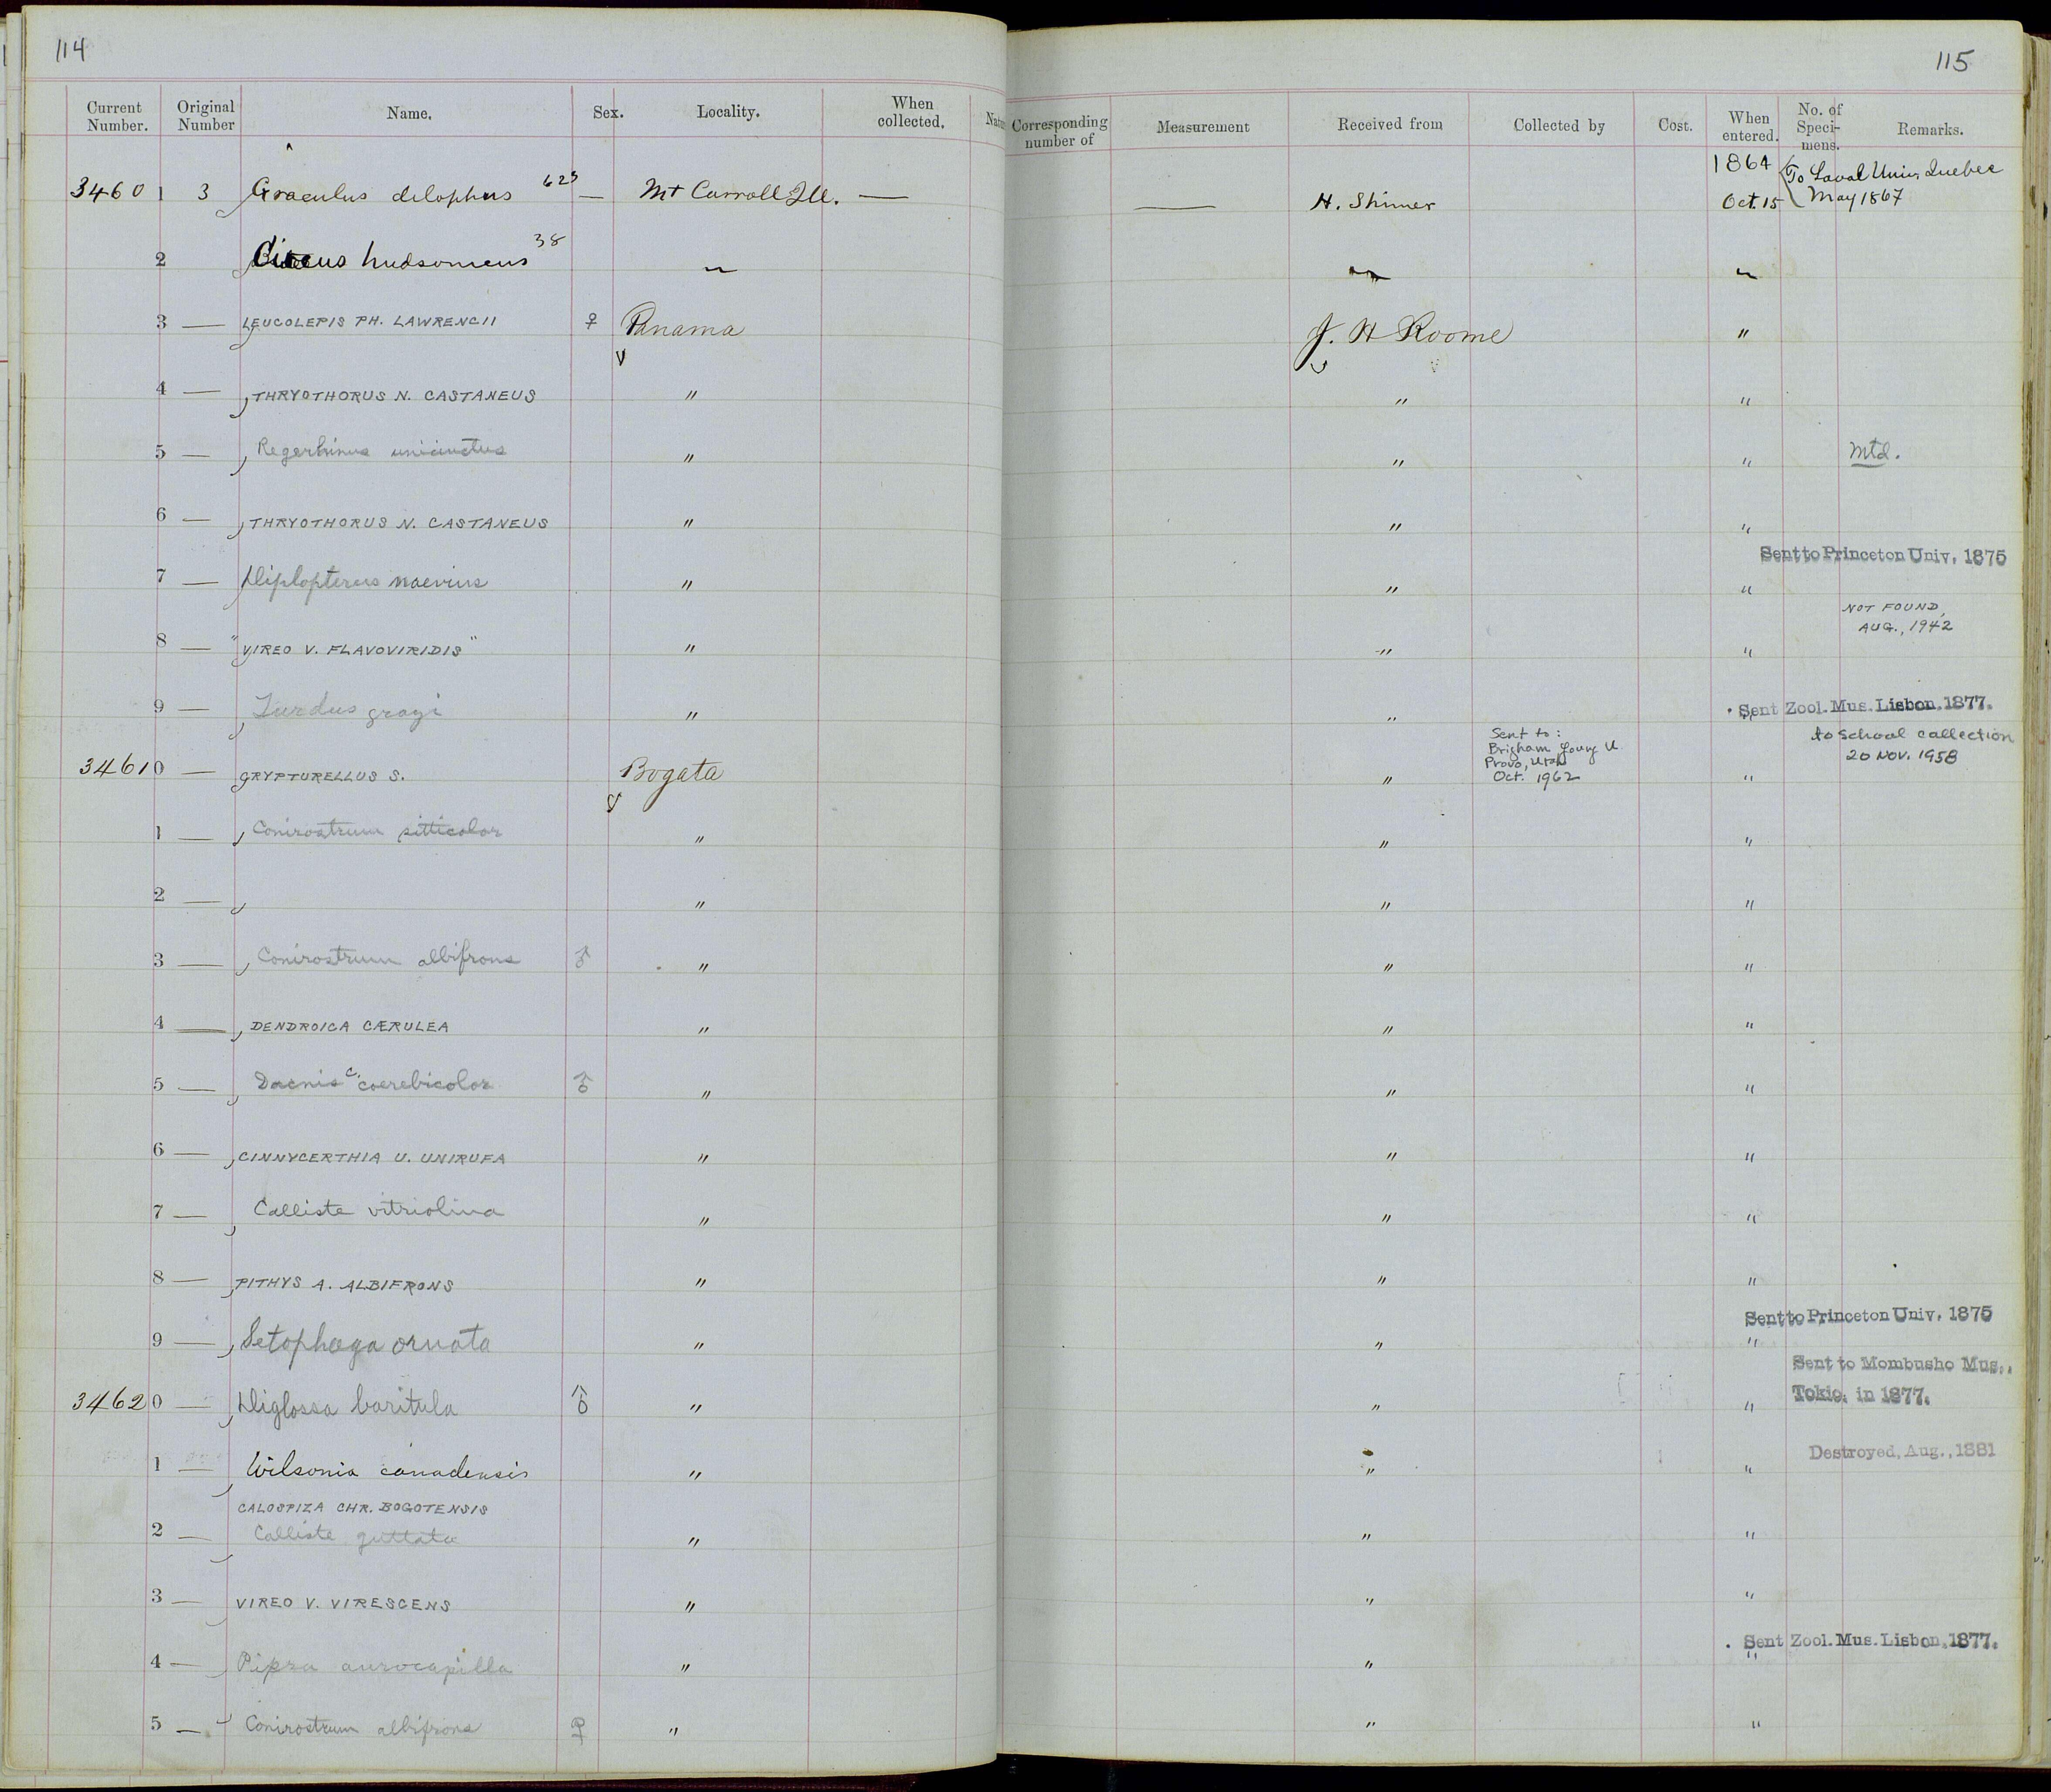 114
115
Current Number. Original Number Name. Sex. Locality. When collected. Natur
Corresponding number of Measurement Received from Collected by Cost. When entered. No. of Speci-mens. Remarks.
34601 3 Graculus dilophus 623 — Mt Carroll Ill. — — H. Shimer 1864 Oct. 15 To Laval Univ. Quebec May 1867
2 Circus hudsonicus 38 " " "
3 — LEUCOLEPIS PH. LAWRENCII ♀ Panama J. H Roome "
4 — THRYOTHORUS N. CASTANEUS " " "
5 — Regerhinus unicinctus " " " Mtd.
6 — THRYOTHORUS N. CASTANEUS " " "
Sent to Princeton Univ. 1875
7 — Diplopterus naevius " " "
8 — "VIREO V. FLAVOVIRIDIS" " " " NOT FOUND, AUG., 1942
9 — Turdus grayi " " " Sent Zool. Mus. Lisbon. 1877.
34610 — CRYPTURELLUS S. Bogata " Sent to: Brigham Young U. Provo, Utah Oct. 1962 " to School collection 20 NOV. 1958
1 — Conirostrum sitticolor " " "
2 — " " "
3 — Conirostrum albifrons ♂ " " "
4 — DENDROICA CÆRULEA " " "
5 — Dacnis c. coerebicolor ♂ " " "
6 — CINNYCERTHIA U. UNIRUFA " " "
7 — Calliste vitriolina " " "
8 — PITHYS A. ALBIFRONS " " "
Sent to Princeton Univ. 1875
9 — Setophaga ornata " " "
34620 — Diglossa baritula ♂ " " " Sent to Mombusho Mus., Tokio, in 1877.
1 — Wilsonia canadensis " " " Destroyed, Aug., 1881
CALOSPIZA CHR. BOGOTENSIS
2 — Calliste guttata " " "
3 — VIREO V. VIRESCENS " " "
4 — Pipra aurocapilla " " " Sent Zool. Mus. Lisbon. 1877.
5 — Conirostrum albifrons ♀ " " "